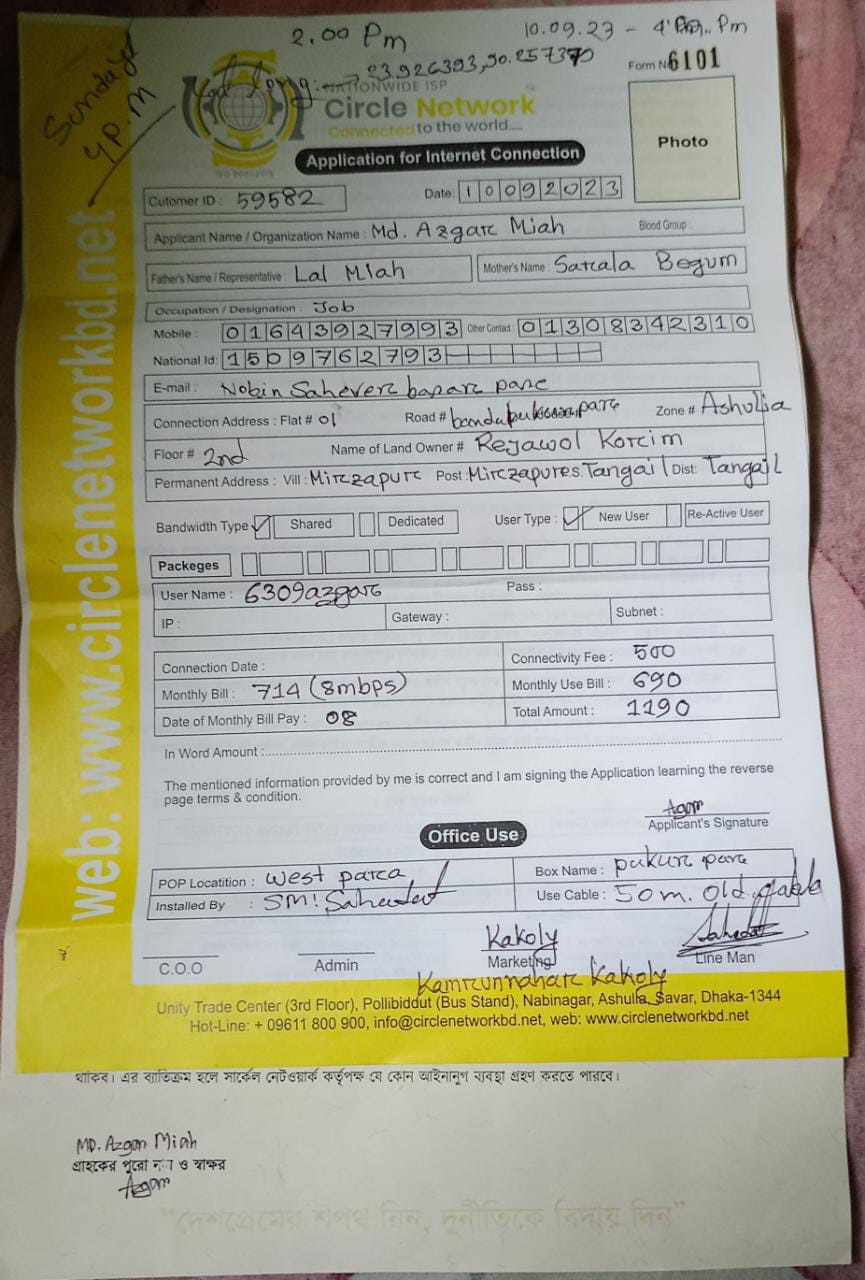 2.00 Pm
10.09.23 - 4 Pm
Sunday
4 P.M
23.926393,90.257370
Form No 6101
NATIONWIDE ISP
Circle Network
Connected to the world....
ISO 9001:2015
Application for Internet Connection
Photo
Cutomer ID : 59582
Date: 10092023
Applicant Name / Organization Name : Md. Azgar Miah Blood Group :
Father's Name / Representative : Lal Miah Mother's Name : Sarala Begum
Occupation / Designation : Job
Mobile : 01643927993 Other Contact : 01308342310
National Id: 1509762793
E-mail : Nobin Sahever bapar pare
Connection Address : Flat # 01 Road # Zone # Ashulia
Floor # 2nd Name of Land Owner # Rejawol Korim
Permanent Address : Vill: Mirzapur Post: Mirzapur P.S. Tangail Dist: Tangail
Bandwidth Type Shared Dedicated User Type : New User Re-Active User
Packeges
User Name : 6309azgar Pass :
IP : Gateway : Subnet :
Connection Date : Connectivity Fee : 500
Monthly Bill : 714 (8mbps) Monthly Use Bill : 690
Date of Monthly Bill Pay : 08 Total Amount : 1190
In Word Amount :
The mentioned information provided by me is correct and I am signing the Application learning the reverse
page terms & condition.
Azgar
Applicant's Signature
Office Use
POP Locatition : West para Box Name : pukur pare
Installed By : SM! Sahadat Use Cable : 50 m. Old
Kakoly Sahadat
C.O.O Admin Marketing Line Man
Kamrunnahar Kakoly
Unity Trade Center (3rd Floor), Pollibiddut (Bus Stand), Nabinagar, Ashulia, Savar, Dhaka-1344
Hot-Line: + 09611 800 900, info@circlenetworkbd.net, web: www.circlenetworkbd.net
web: www.circlenetworkbd.net
থাকিব। এর ব্যতিক্রম হলে সার্কেল নেটওয়ার্ক কর্তৃপক্ষ যে কোন আইনানুগ ব্যবস্থা গ্রহণ করতে পারবে।
MD. Azgar Miah
গ্রাহকের পুরো নাম ও স্বাক্ষর
Azgar
“দেশপ্রেমের শপথ নিন, দুর্নীতিকে বিদায় দিন”